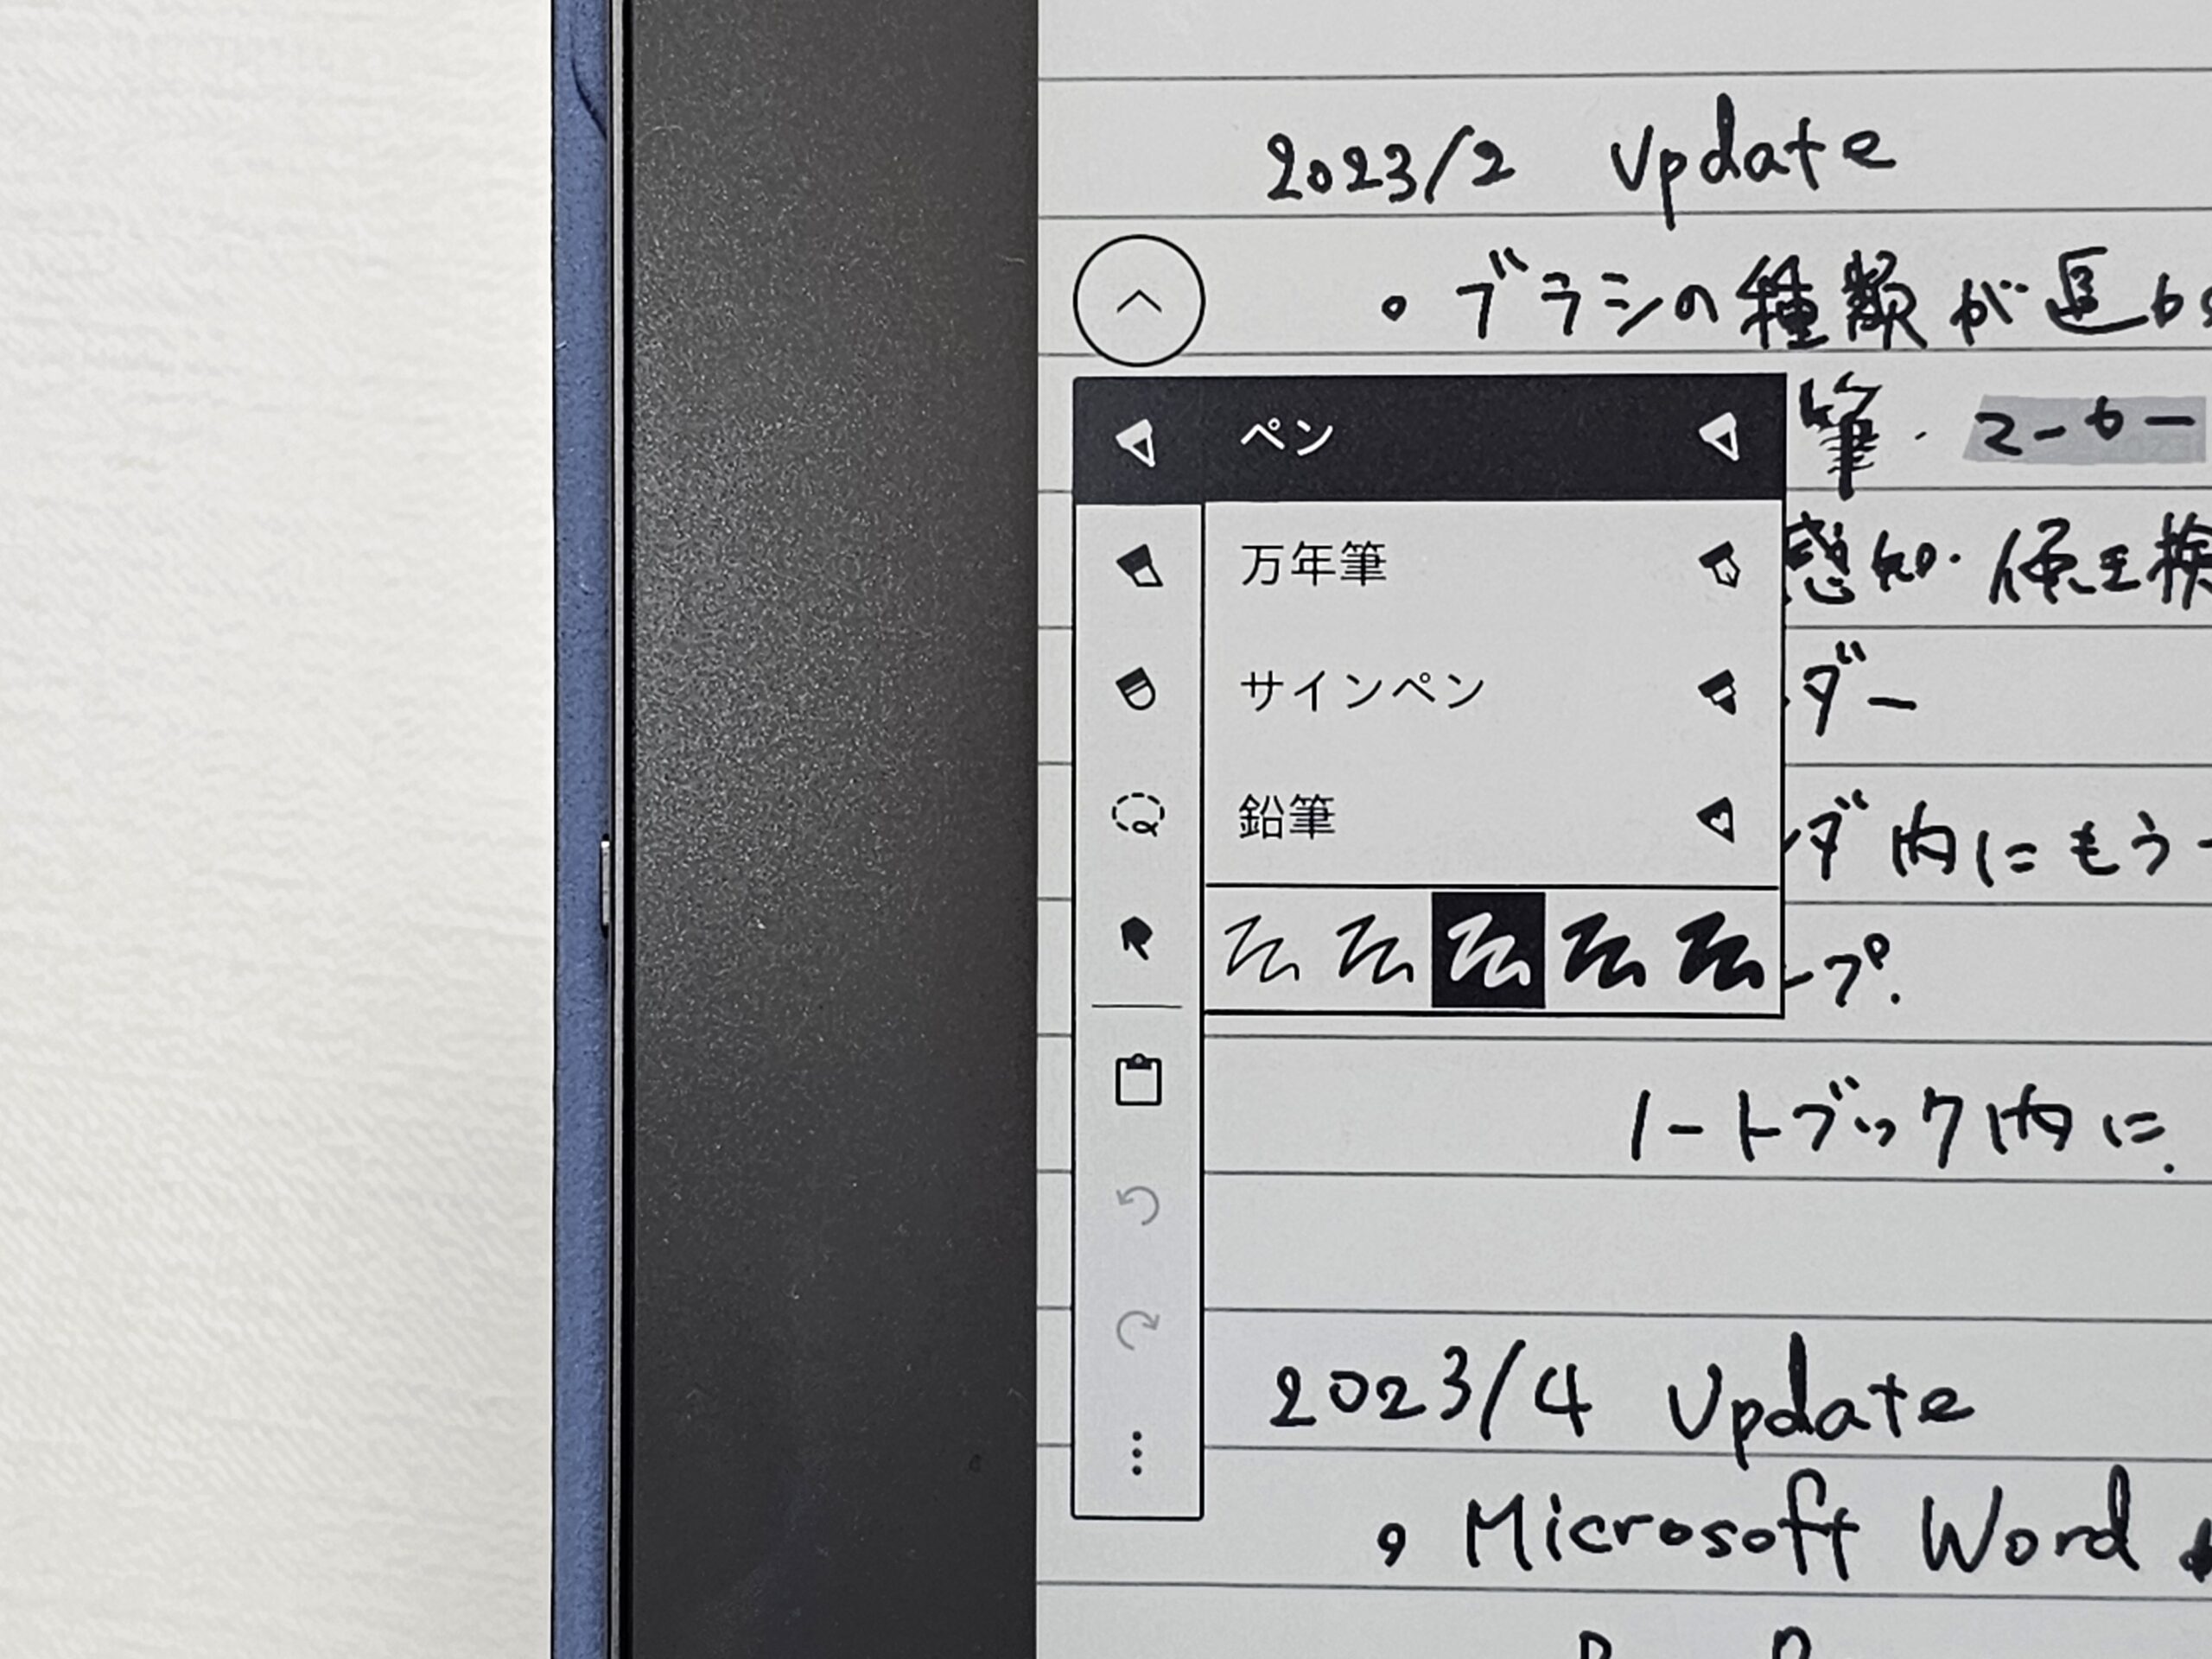 2023/2 Update
。ブラシの種類が追か
ペン
筆・マーカー
万年筆
感知・傾き検
サインペン
ダー
鉛筆
ダ内にもう
ープ.
ノートブック内に.
2023/4 Update
。Microsoft Word